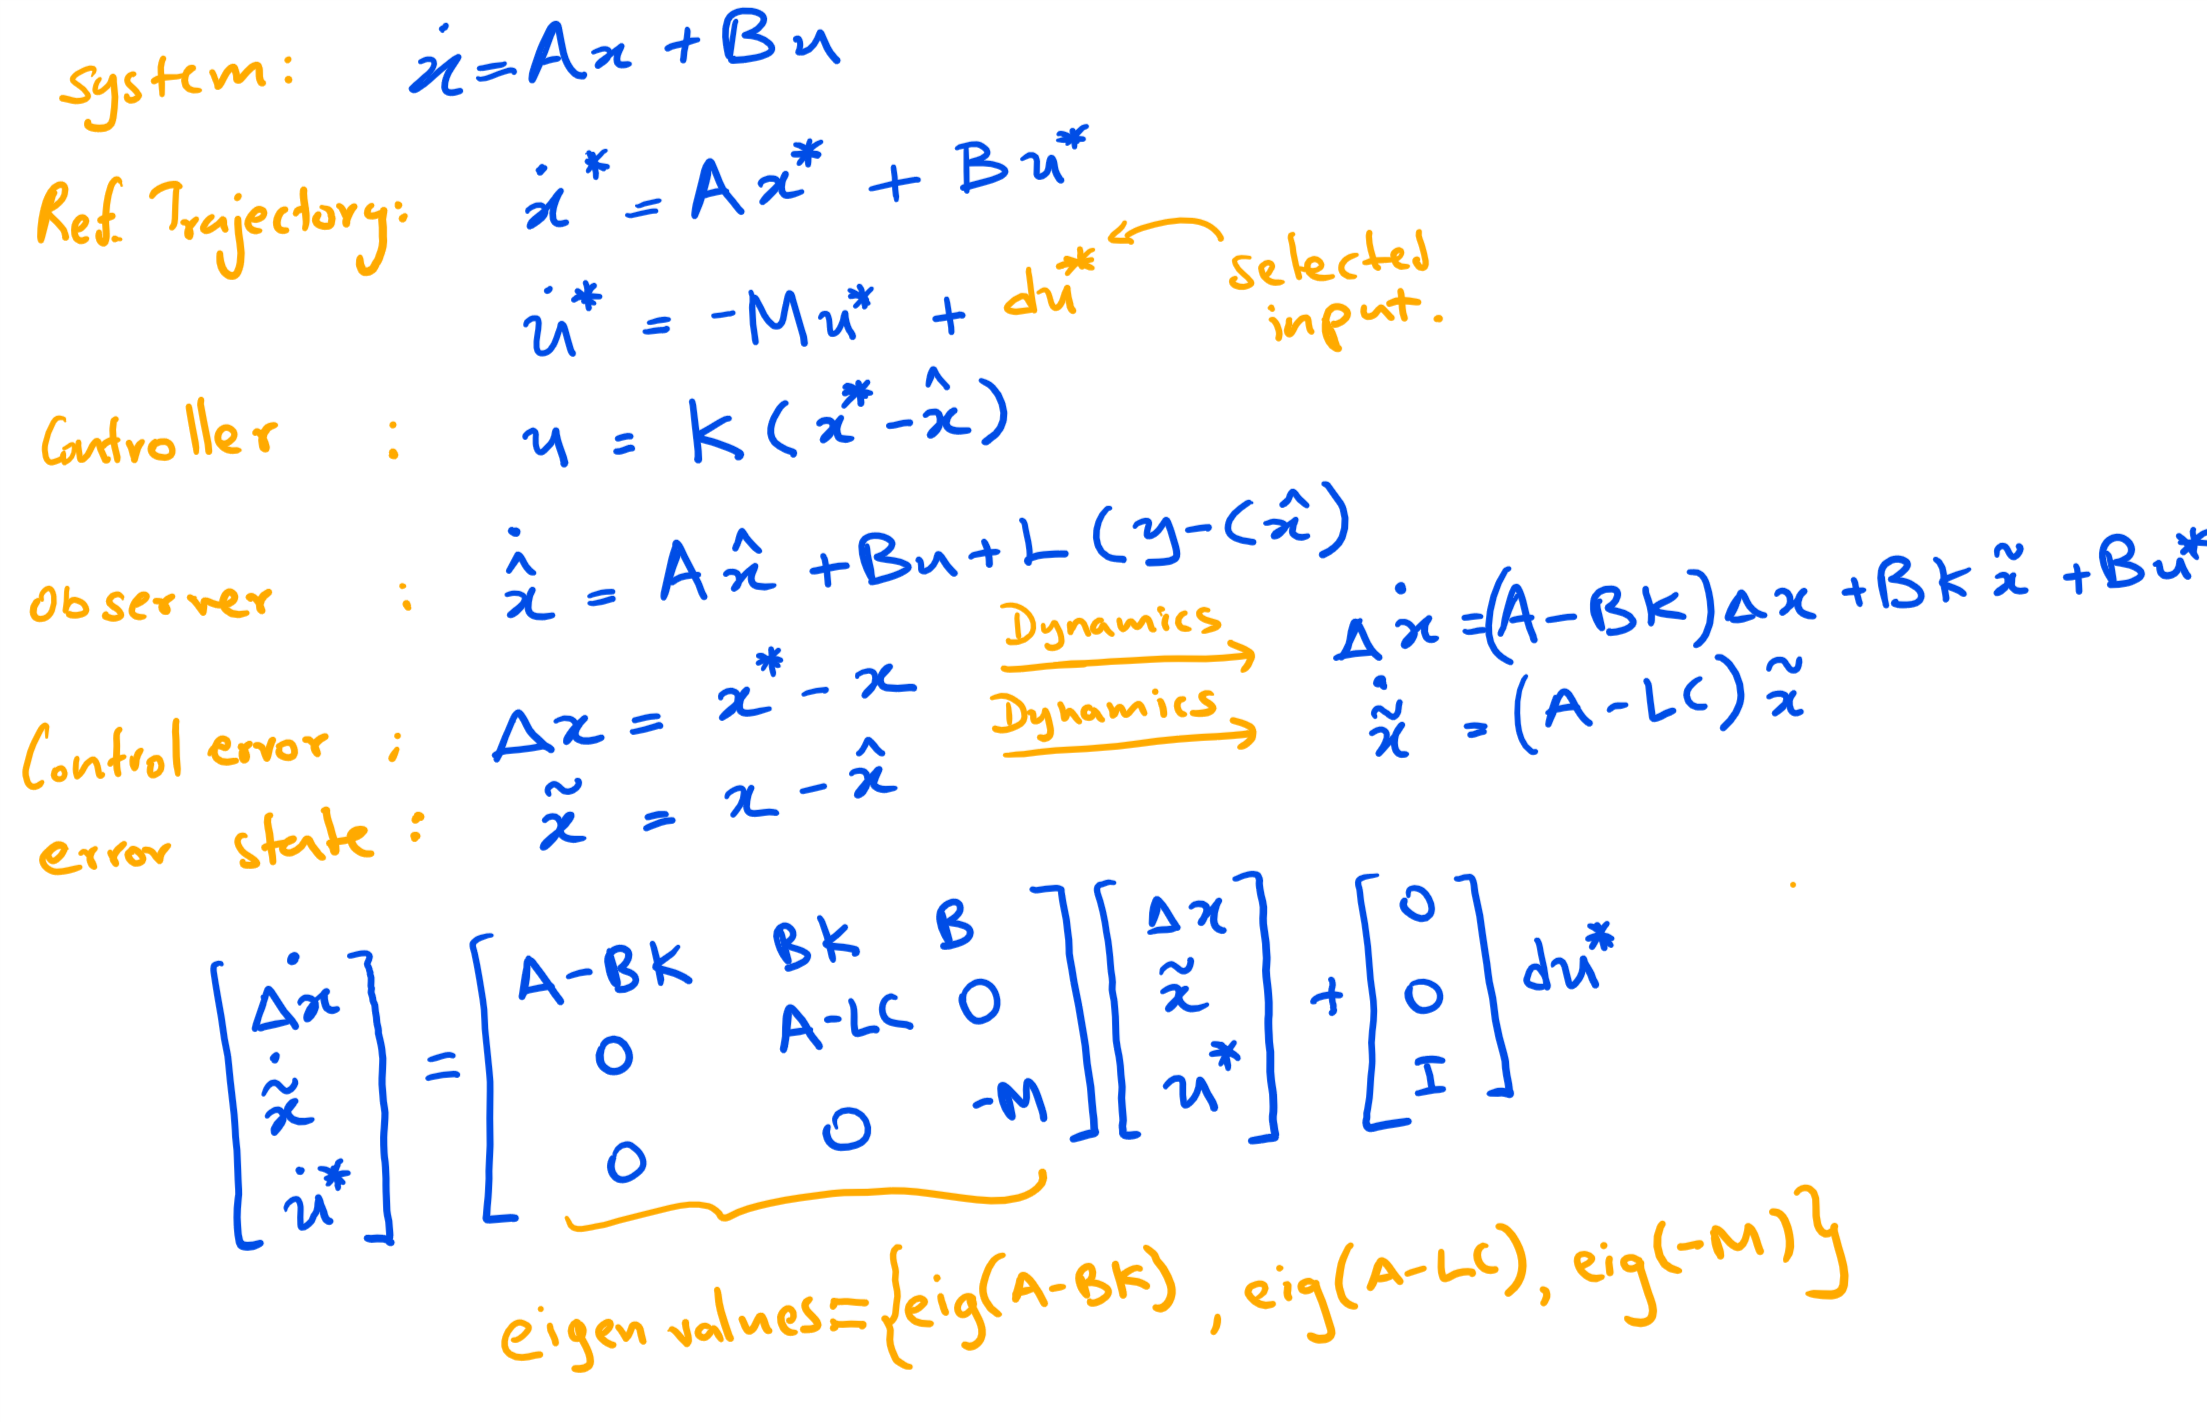 system: ẋ = Ax + Bu
Ref. Trajectory: ẋ* = Ax* + Bu*
u̇* = -Mu* + du* selected input.
Controller : u = K(x* - x̂)
Observer : x̂̇ = Ax̂ + Bu + L(y - Cx̂)
Control error : Δx = x* - x Dynamics Δẋ = (A - BK)Δx + BKx̃ + Bu*
error state : x̃ = x - x̂ Dynamics x̃̇ = (A - LC)x̃
[Δẋ; x̃̇; u̇*] = [A-BK BK B; 0 A-LC 0; 0 0 -M] [Δx; x̃; u*] + [0; 0; I] du*
eigen values = {eig(A-BK), eig(A-LC), eig(-M)}